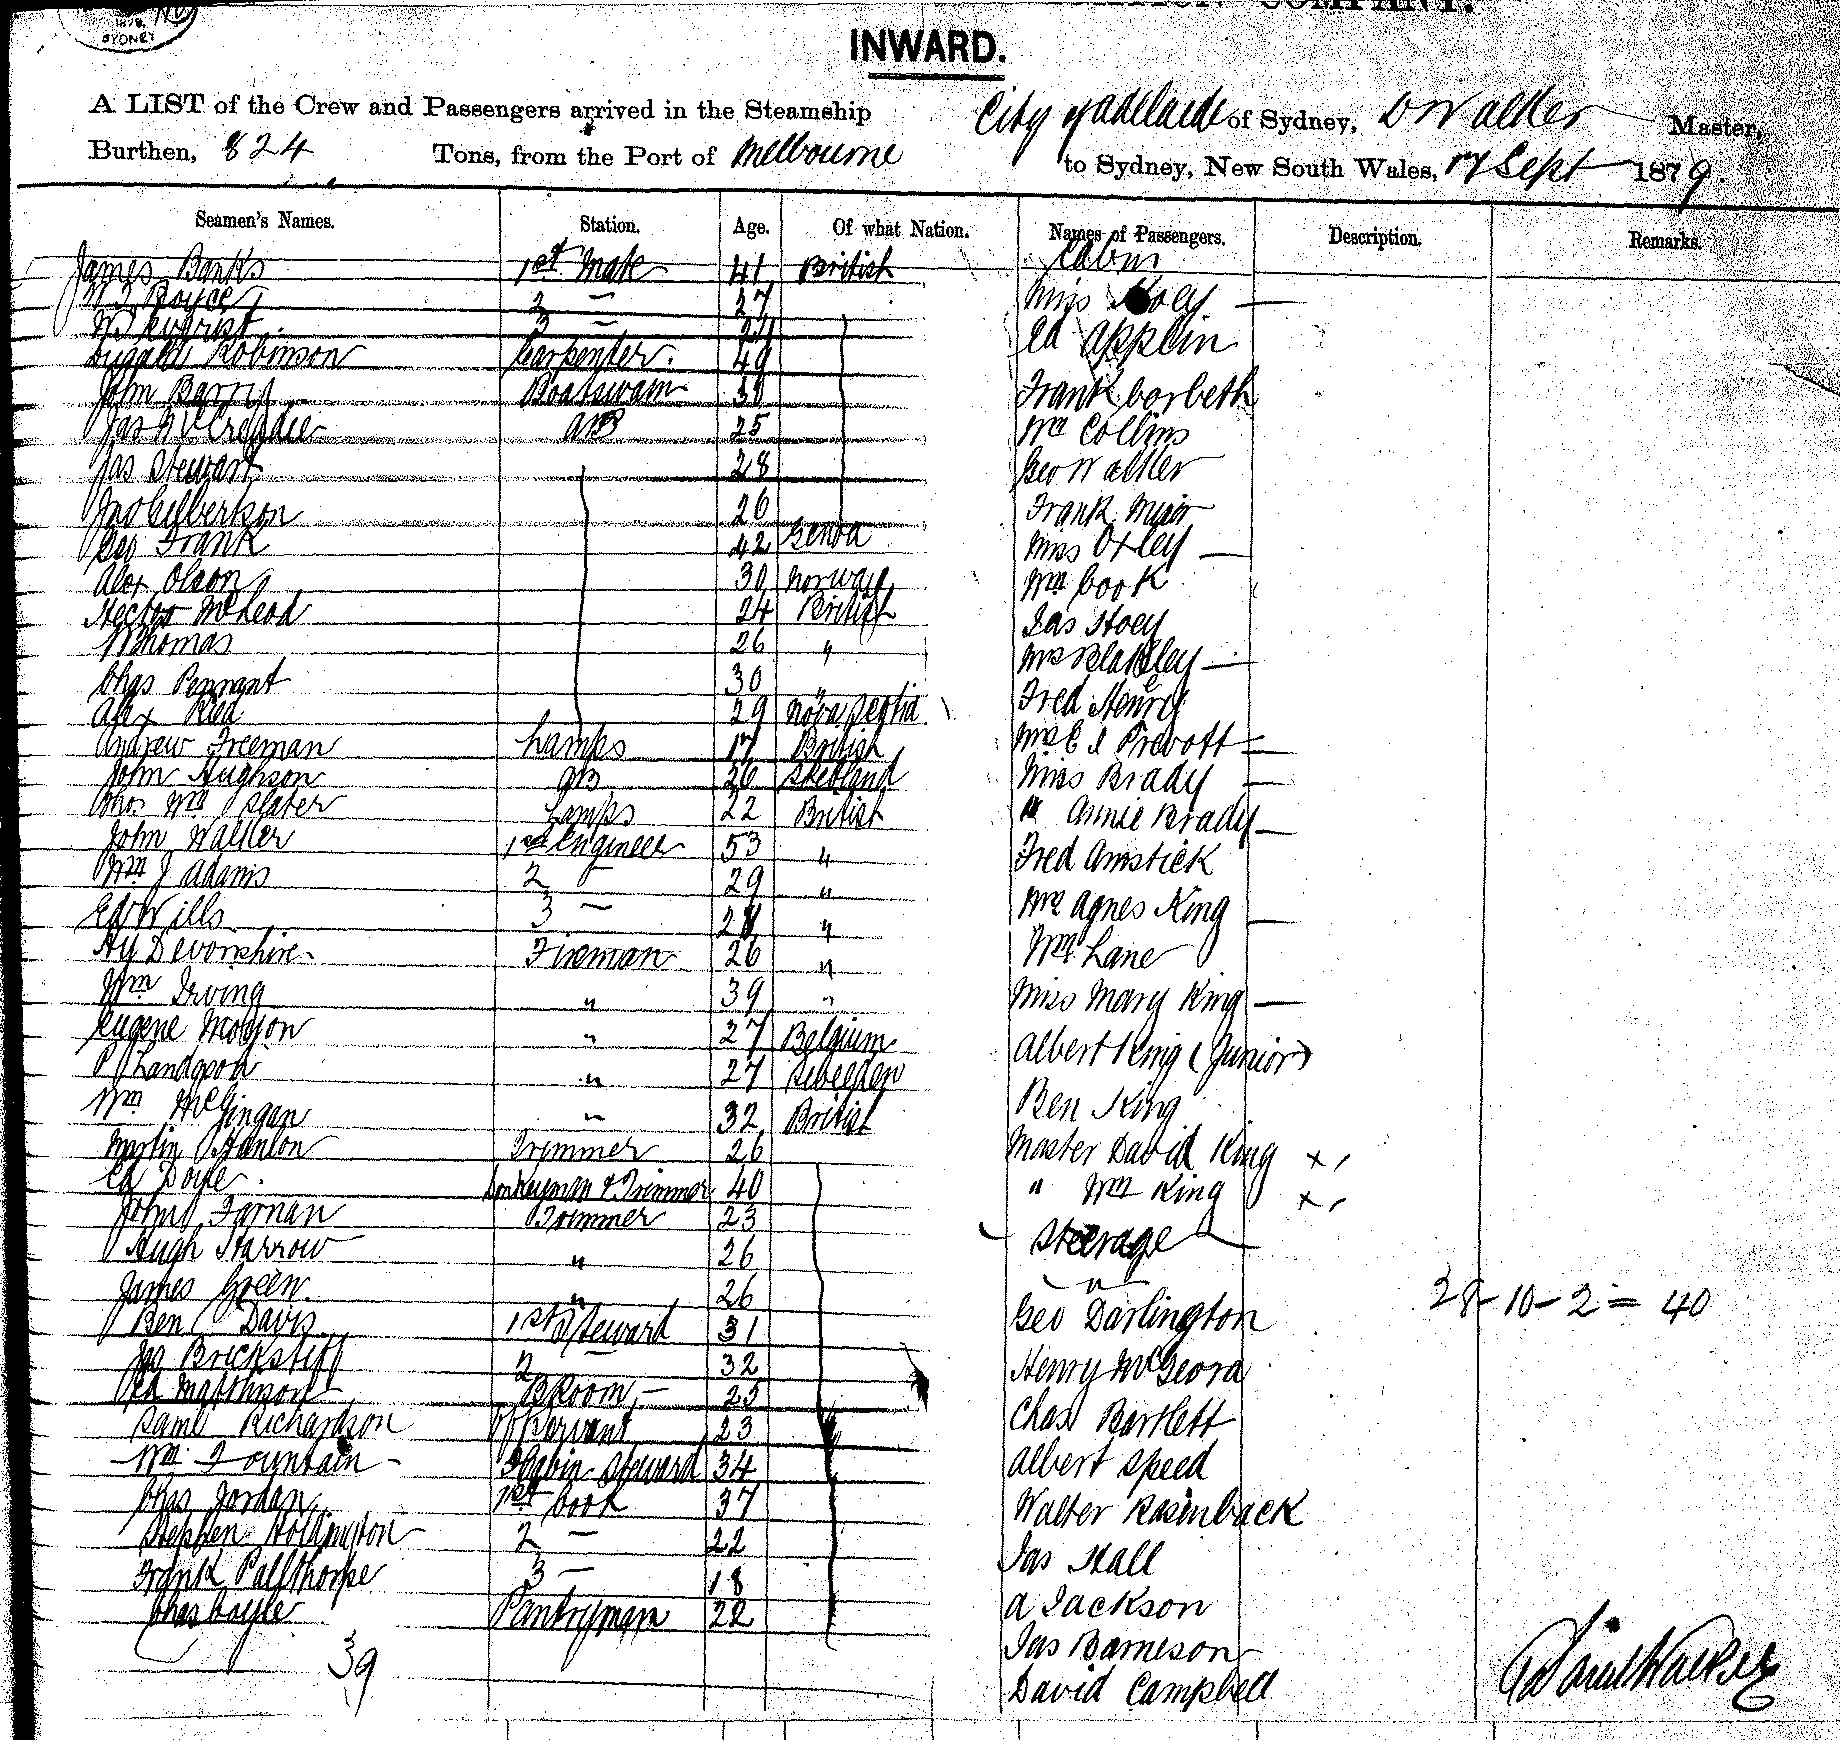 1879
SYDNEY
COMPANY.
INWARD.
A LIST of the Crew and Passengers arrived in the Steamship City of Adelaide of Sydney, D Walker Master,
Burthen, 824 Tons, from the Port of Melbourne to Sydney, New South Wales, 17 Sept 1879.
Seamen's Names. Station. Age. Of what Nation. Names of Passengers. Description. Remarks.
Cabin
James Banks 1st Mate 41 British
Royce 2 — 37 Miss Hoey —
3 — Ed Applin
Dugald Robinson Carpenter. 49
John Barry Boatswain Frank Corbeth
Jas AB 25 Wm Collins
Jas Stewart 28 Geo Walker
Jno Culbertson 26 Frank Muir
Geo Frank 42 Genoa Miss Oxley —
Alex Olson 30 Norway Wm Cook
Hector McLeod 24 British Jas Hoey
W Thomas 26 " Mrs Blakeley —
Chas Pennant 30 " Fred Henry
Alex Reid 29 Nova Scotia
Andrew Freeman Lamps 17 British Mrs C J Prevott —
John Hughson AB 26 Shetland Miss Brady —
Thos Wm Slater Lamps 22 British " Annie Brady —
John Walker 1st Engineer 53 " Fred Amstick
Wm J Adams 2 — 29 "
Ed Wills 3 — 28 " Mrs Agnes King —
Hy Devonshire Fireman 26 " Wm Lane
Wm Irving " 39 " Miss Mary King —
Eugene " 27 Belgium Albert King (Junior)
" 27 Sweeden
Wm McGingan " 32 British Ben King
Martin Hanlon Trimmer 26 Master David King x,
Ed Doyle. Donkeyman & Trimmer 40 " Wm King x,
John Farnan Trimmer 23 Steerage
Hugh Harrow " 26
James Green. " 26 Geo Darlington 28-10-2 = 40
Ben Davis 1st Steward 31
Jas 2 32 Henry McGeora
Ed Matthison B Room — 23
Saml Richardson Servant 23 Chas Bartlett
Wm Fountain Cabin Steward 34 Albert Speed
Chas Jordan 1st Cook 37 Walter Rosinback
Stephen Hollington 2 — 22
Frank Palfthorpe 3 — 18 Jas Hall
Chas Coyle Pantryman 22 A Jackson
39 Jas Bameson
David Campbell
David Walker